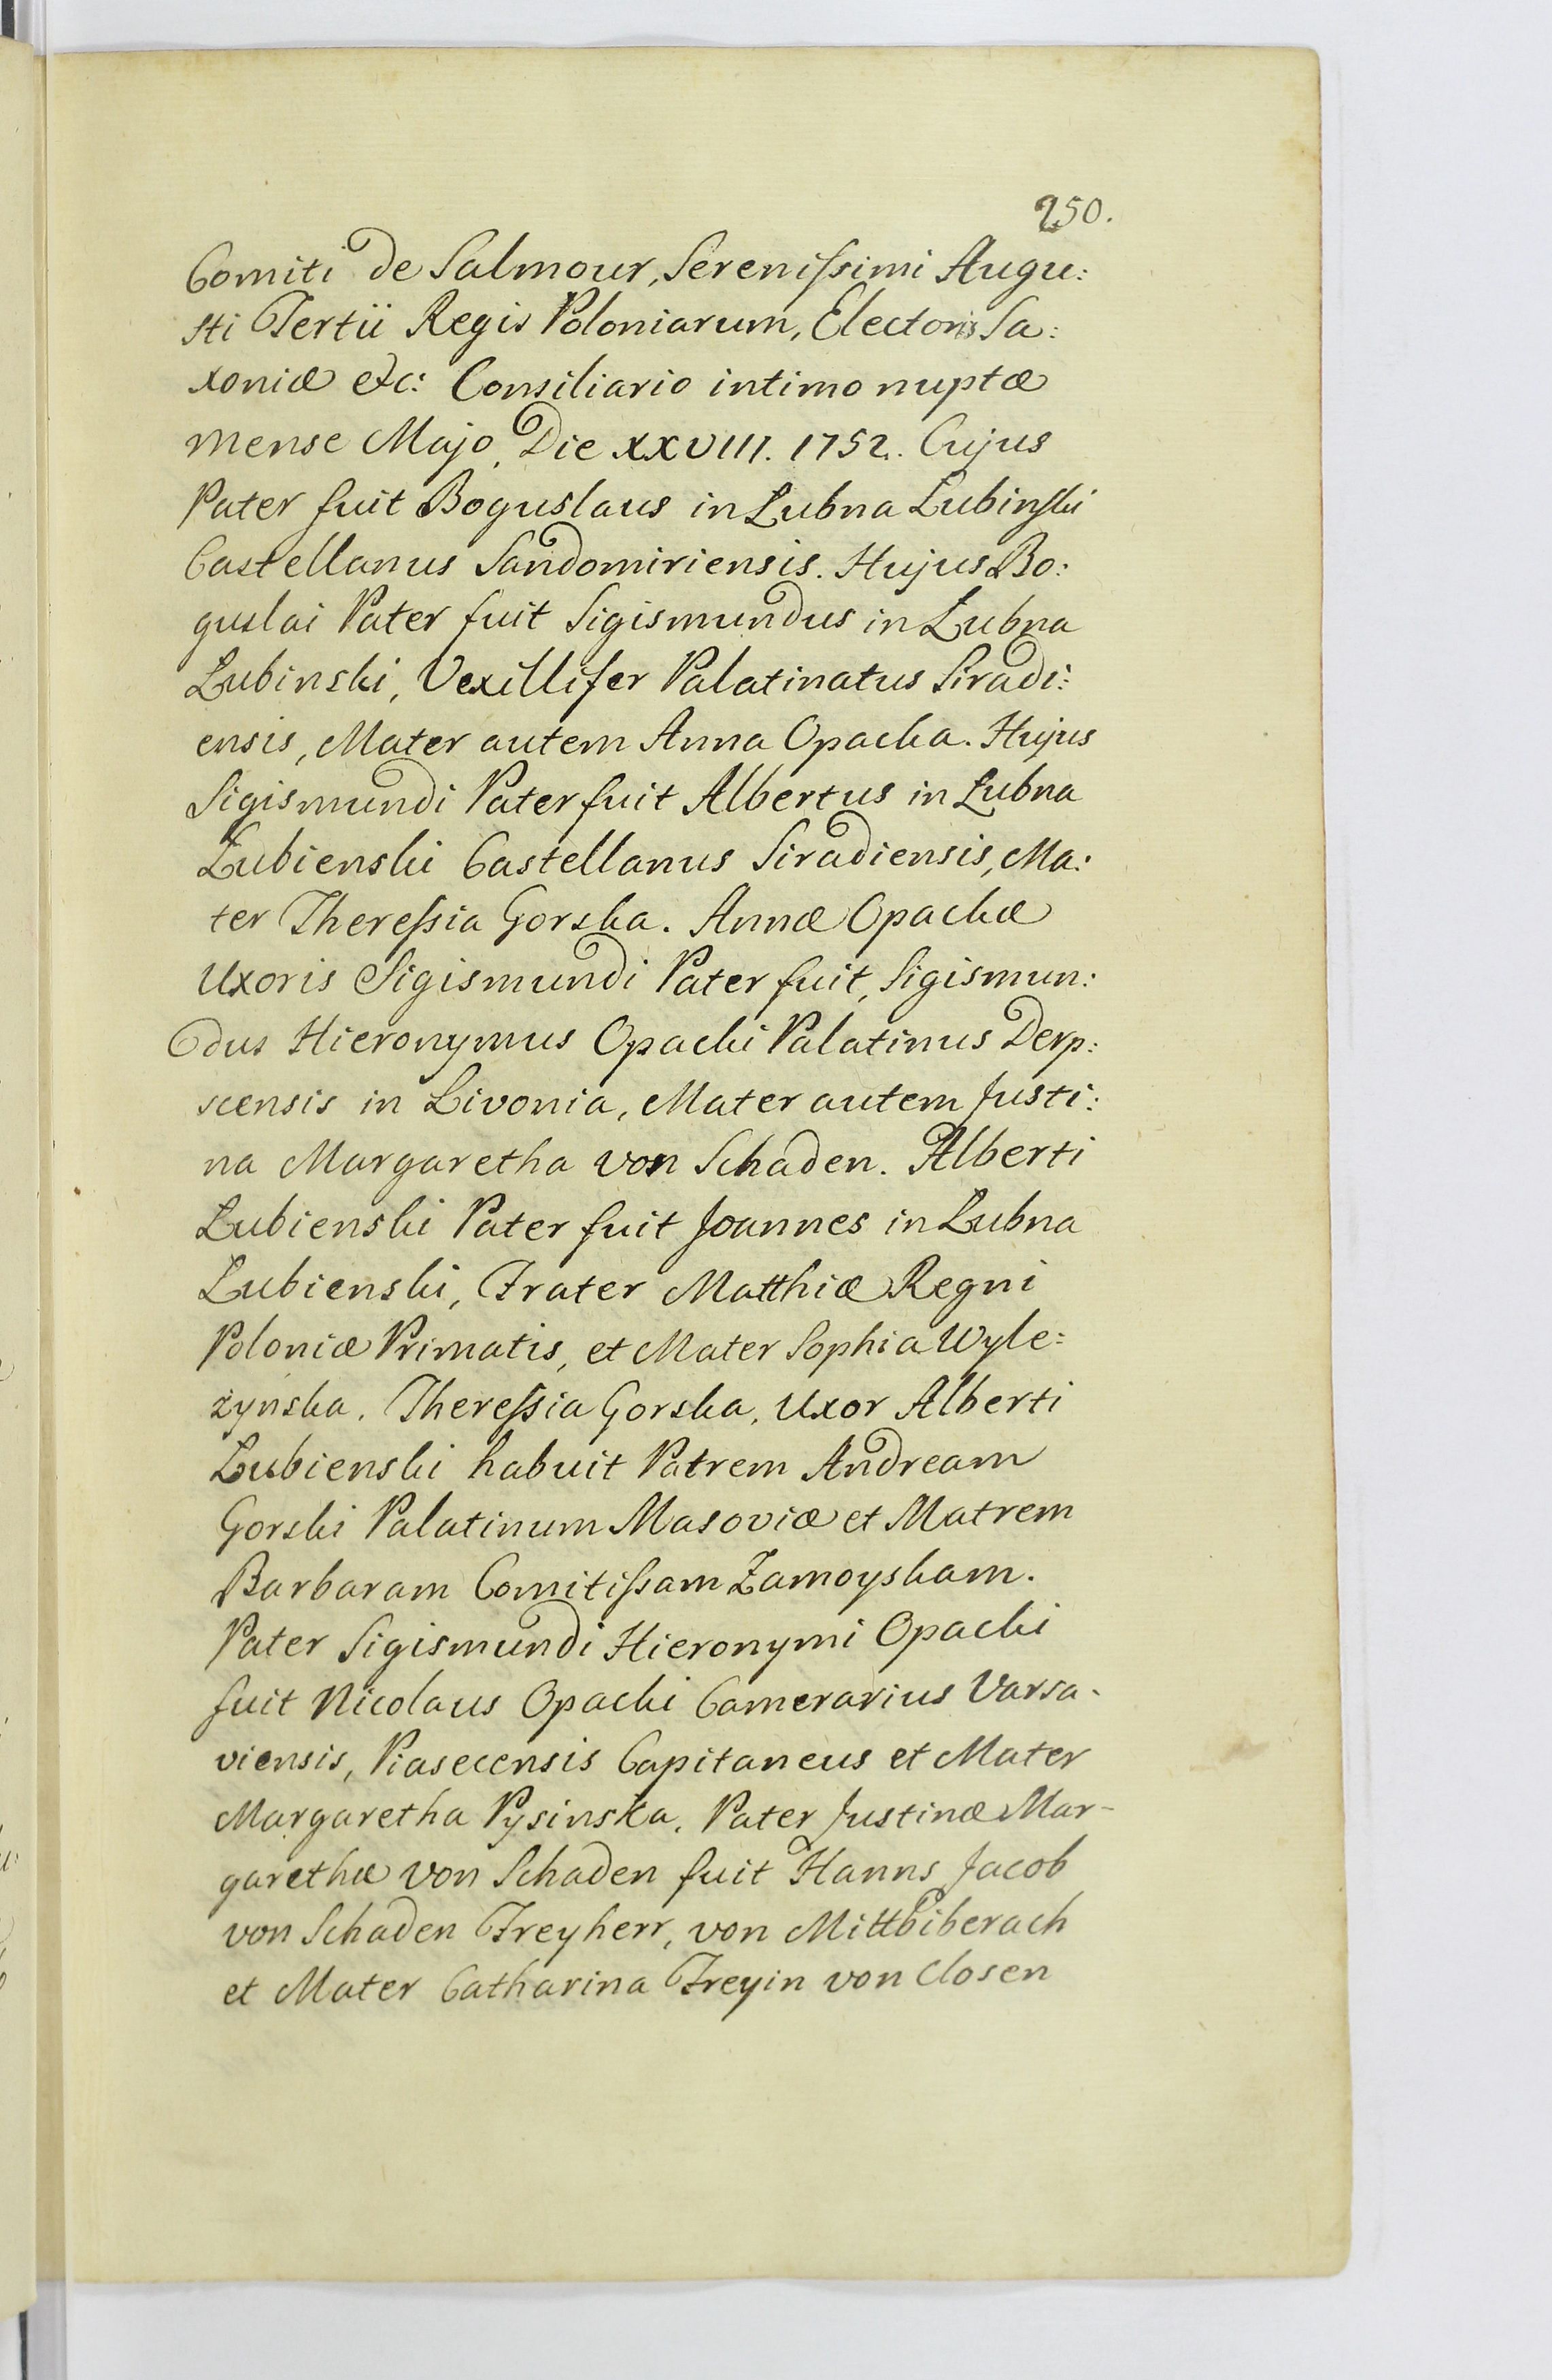 250.
Comiti de Salmour, Sereniſsimi Augu:
sti Tertii Regis Poloniarum, Electoris Sa:
xoniæ etc: Consiliario intimo nuptæ
mense Majo, Die XXVIII. 1752. Cujus
Pater fuit Boguslaus in Lubna Lubinski
Castellanus Sandomiriensis. Hujus Bo:
guslai Pater fuit Sigismundus in Lubna
Lubinski, Vexillifer Palatinatus Siradi:
ensis, Mater autem Anna Opacka. Hujus
Sigismundi Pater fuit Albertus in Lubna
Lubienski Castellanus Siradiensis, Ma:
ter Thereſsia Gorska. Annæ Opackæ
Uxoris Sigismundi Pater fuit, Sigismun:
dus Hieronymus Opacki Palatinus Derp:
scensis in Livonia, Mater autem Justi:
na Margaretha von Schaden. Alberti
Lubienski Pater fuit Joannes in Lubna
Lubienski, Frater Matthiæ Regni
Poloniæ Primatis, et Mater Sophia Wyle:
zynska. Thereſsia Gorska, Uxor Alberti
Lubienski habuit Patrem Andream
Gorski Palatinum Masoviæ et Matrem
Barbaram Comitiſsam Zamoyskam.
Pater Sigismundi Hieronymi Opacki
fuit Nicolaus Opacki Camerarius Varsa-
viensis, Piasecensis Capitaneus et Mater
Margaretha Pysinska. Pater Justinæ Mar-
garethæ von Schaden fuit Hanns Jacob
von Schaden Freyherr, von Mittbiberach
et Mater Catharina Freyin von Closen